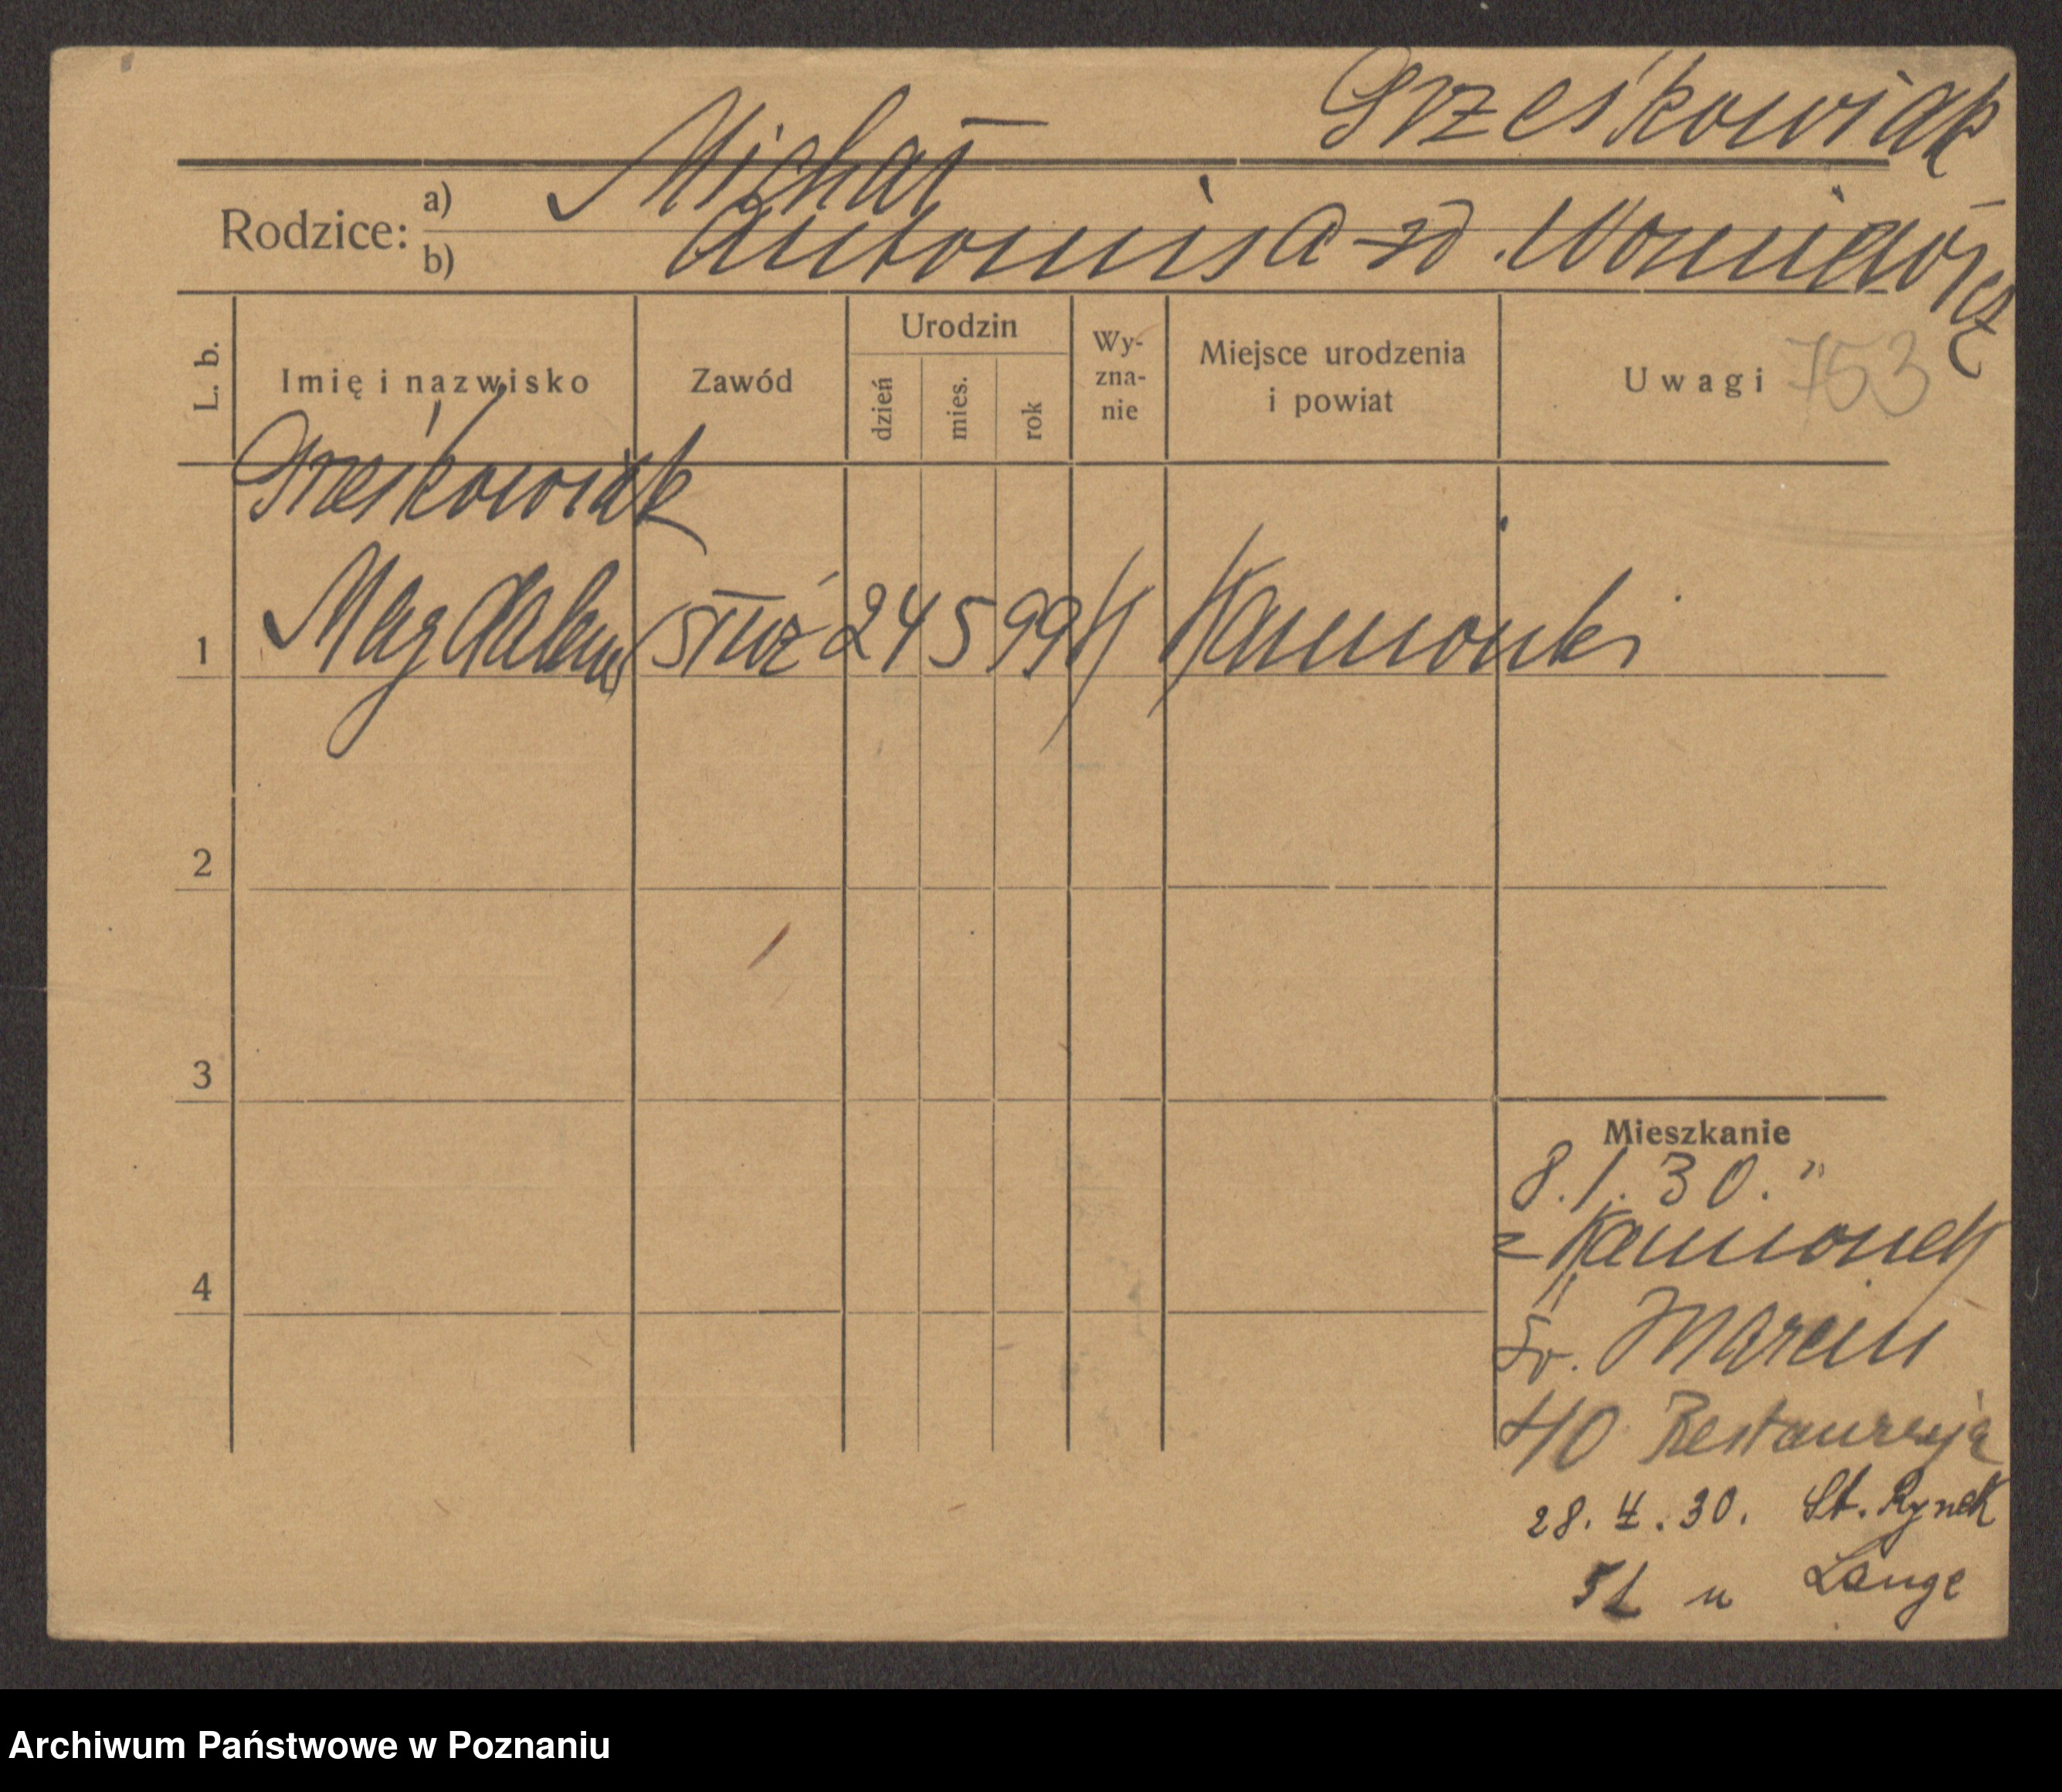 Grześkowiak
Rodzice: a) Michał
b) Antonina zd.
L. b.
Imię i nazwisko
Zawód
Urodzin
dzień
mies.
rok
Wy-
zna-
nie
Miejsce urodzenia
i powiat
Uwagi 753
Grześkowiak
1 Magdalena służ 24 5 99 K Kamionki
2
3
4
Mieszkanie
8.1.30."
z Kamionek
Św. Marcin
40 Restauracja
28. 4. 30. St. Rynek
51 u Lange
Archiwum Państwowe w Poznaniu